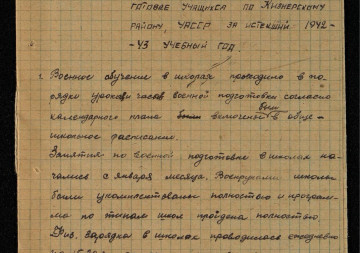 ГОТОВКЕ УЧАЩИХСЯ ПО КИЗНЕРСКОМУ
РАЙОНУ, УАССР, ЗА ИСТЕКШИЙ 1942-
-43 УЧЕБНЫЙ ГОД.
1. Военное обучение в школах проводимо в по-
рядке уроков и часов военной подготовки согласно
были
календарного плана были включены в обще-
школьное расписание.
Занятия по военной подготовке в школах на-
чались с января месяца. Военруками школы
были укомплектованы полностью и програм-
ма по типам школ пройдена полностью.
Физ. зарядка в школах проводилась ежедневно